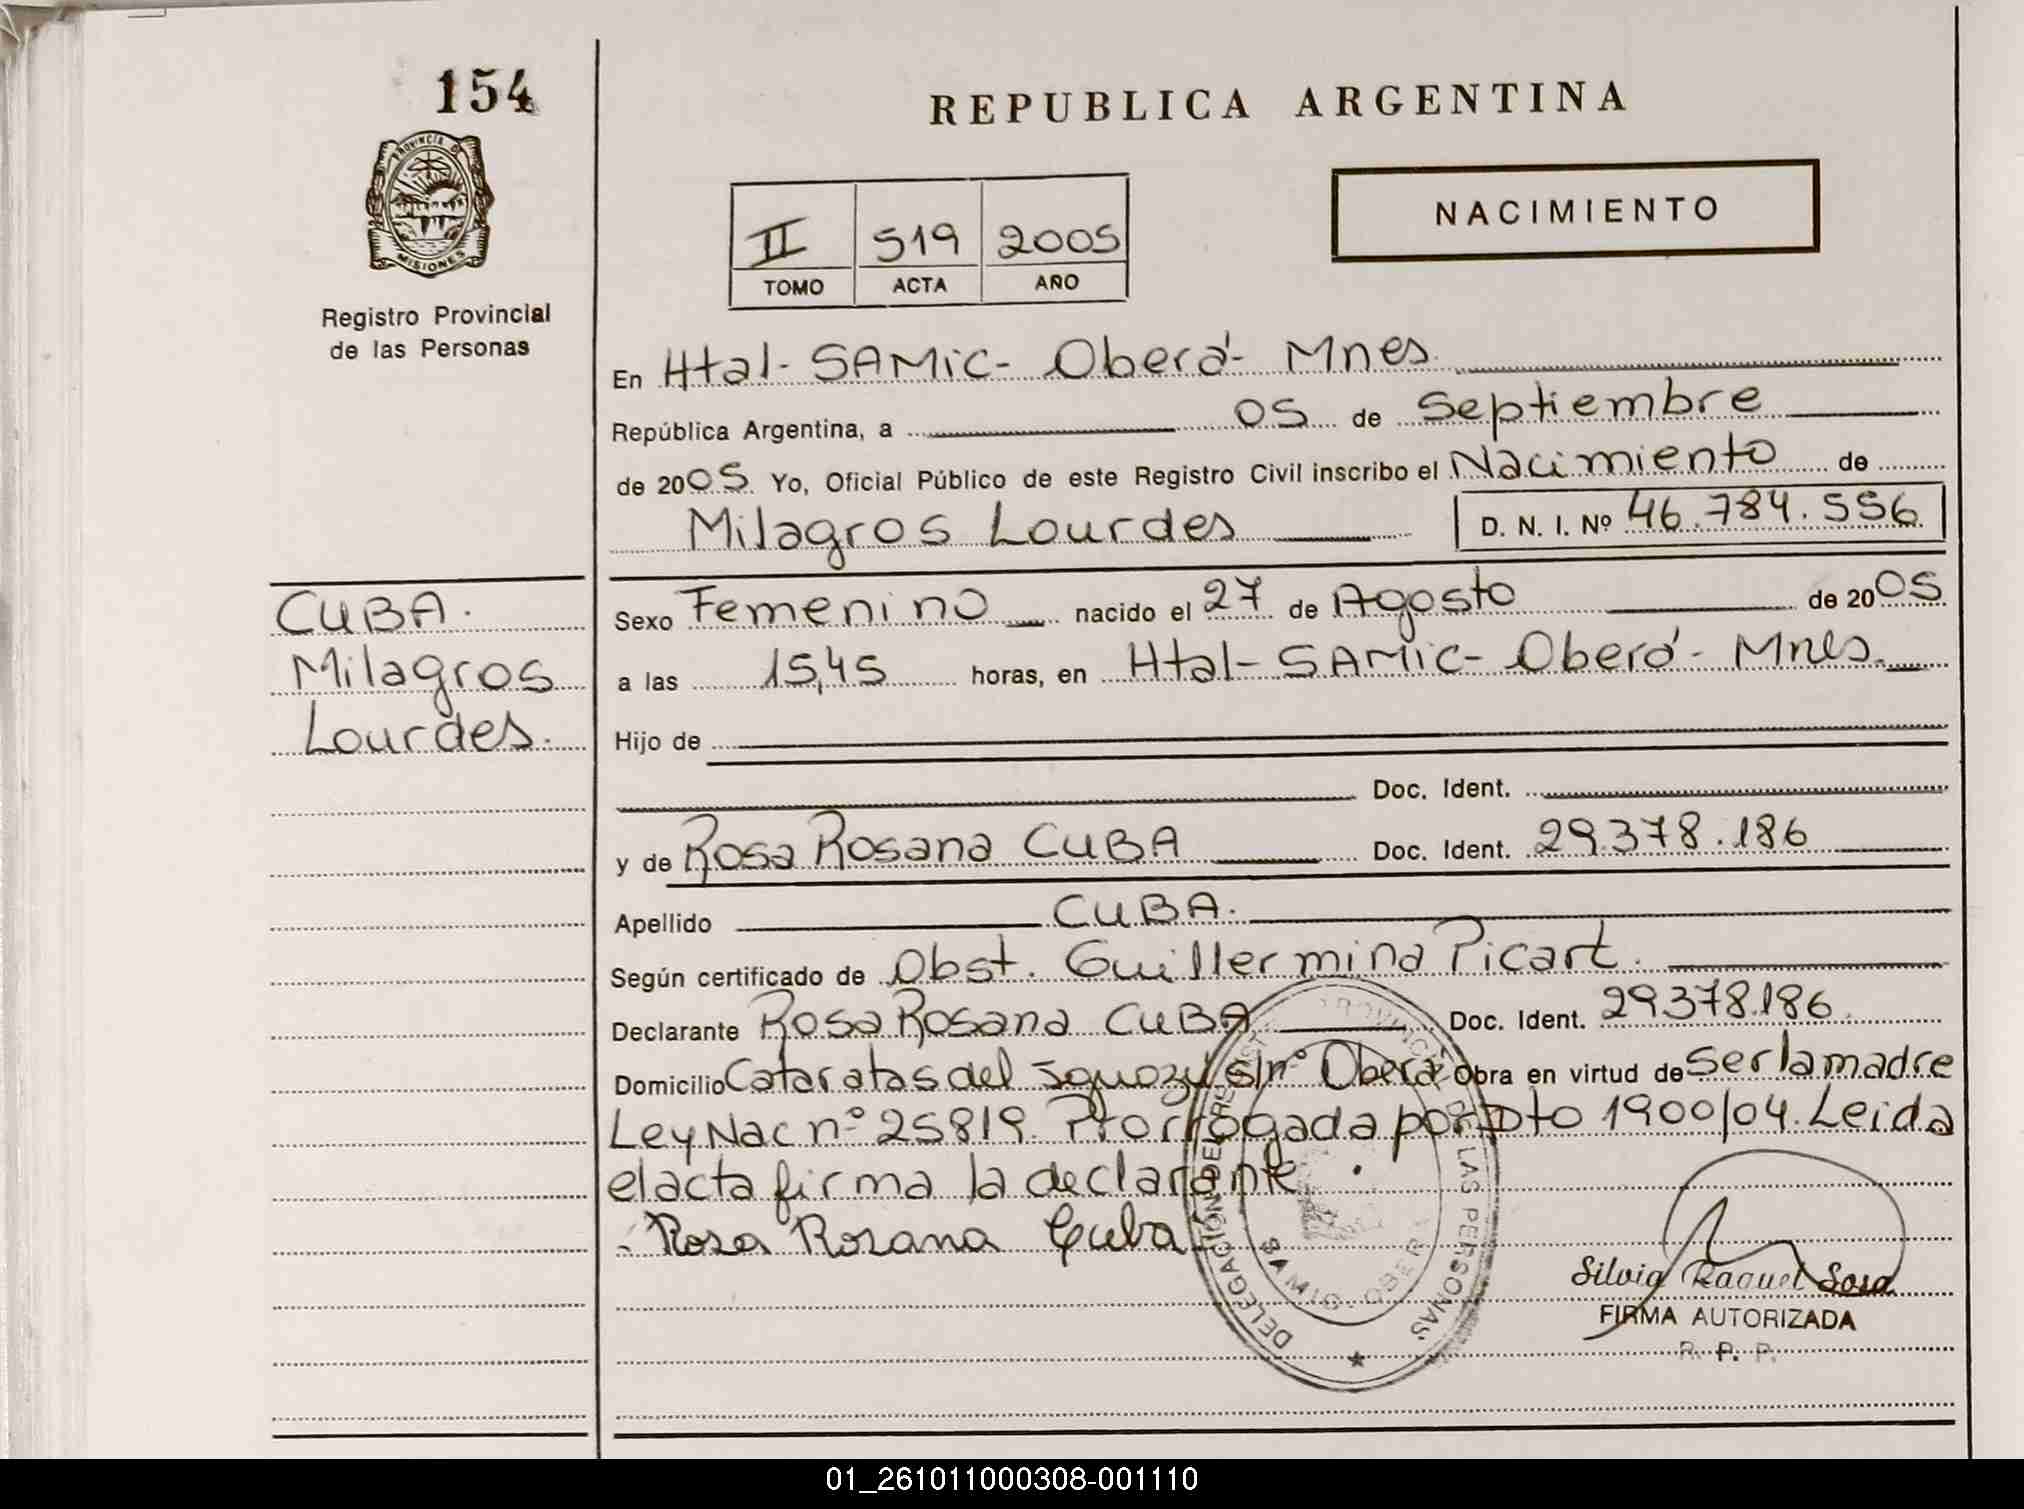 154
PROVINCIA D
MISIONES
Registro Provincial
de las Personas
REPUBLICA ARGENTINA
II 519 2005
TOMO ACTA AÑO
NACIMIENTO
En Htal-SAMiC-Oberá-Mnes.
República Argentina, a 05 de Septiembre
de 2005 Yo, Oficial Público de este Registro Civil inscribo el Nacimiento de
Milagros Lourdes D. N. I. Nº 46.784.556
CUBA.
Milagros
Lourdes.
Sexo Femenino nacido el 27 de Agosto de 2005
a las 15,45 horas, en Htal-SAMiC-Oberá-Mnes.
Hijo de
Doc. Ident.
y de Rosa Rosana CUBA Doc. Ident. 29.378.186
Apellido CUBA.
Según certificado de Obst. Guillermina Picart.
Declarante Rosa Rosana CUBA Doc. Ident. 29378.186
Domicilio Cataratas del Iguazú s/nº Oberá Obra en virtud de ser la madre
Ley Nac nº 25819. Prorrogada por Dto 1900/04. Leida
el acta firma la declarante.
Rosa Rosana Cuba
DELEGACIÓN DEL REGIST PROVINCIAL DE LAS PERSONAS
SAMIC-OBER
Silvia Raquel Sosa
FIRMA AUTORIZADA
R. P. P.
01_261011000308-001110